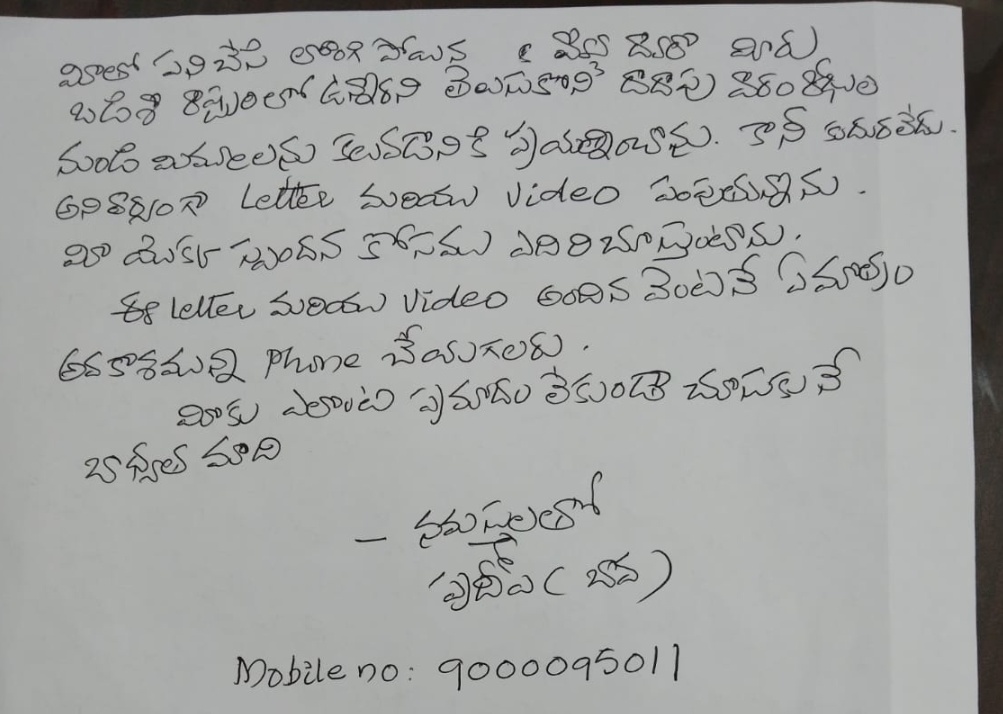 మీతో పని చేసి లొంగి పోయిన వేల ద్వారా మీరు
లో ఉన్నారని తెలుసుకొని దాదాపు వారం రోజుల
నుండి మిమ్ములను కలవడానికి ప్రయత్నించాను. కానీ కుదురలేదు.
అనివార్యంగా Letter మరియు video పంపుతున్నాను.
మీ యొక్క స్పందన కోసము ఎదిరి చూస్తుంటాను.
ఈ letter మరియు video అందిన వెంటనే ఏ మాత్రం
అవకాశమున్న Phone చేయగలరు.
మీకు ఎలాంటి ప్రమాదం లేకుండా చూసుకునే
బాధ్యత మాది
– నమస్తులతో
ప్రదీప్ (బావ)
Mobile no: 9000095011